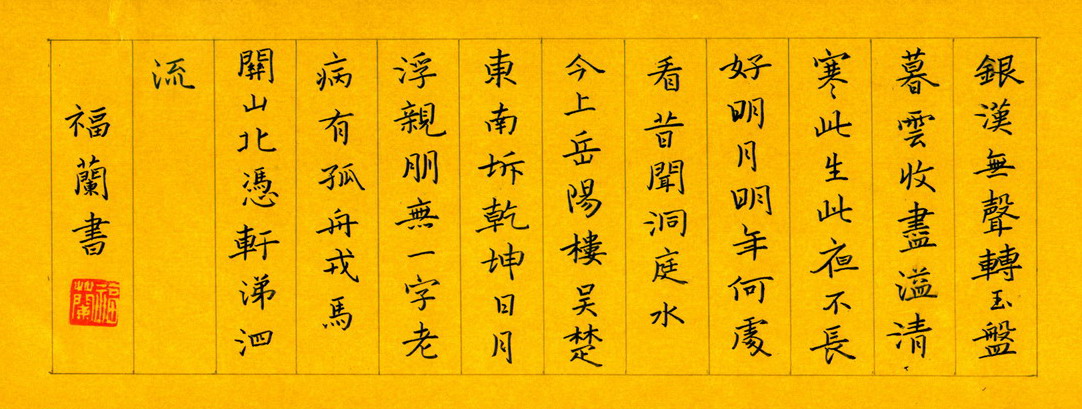 銀漢無聲轉玉盤
暮雲收盡溢清
寒此生此夜不長
好明月明年何處
看昔聞洞庭水
今上岳陽樓吳楚
東南坼乾坤日月
浮親朋無一字老
病有孤舟戎馬
關山北憑軒涕泗
流
福蘭書
福蘭